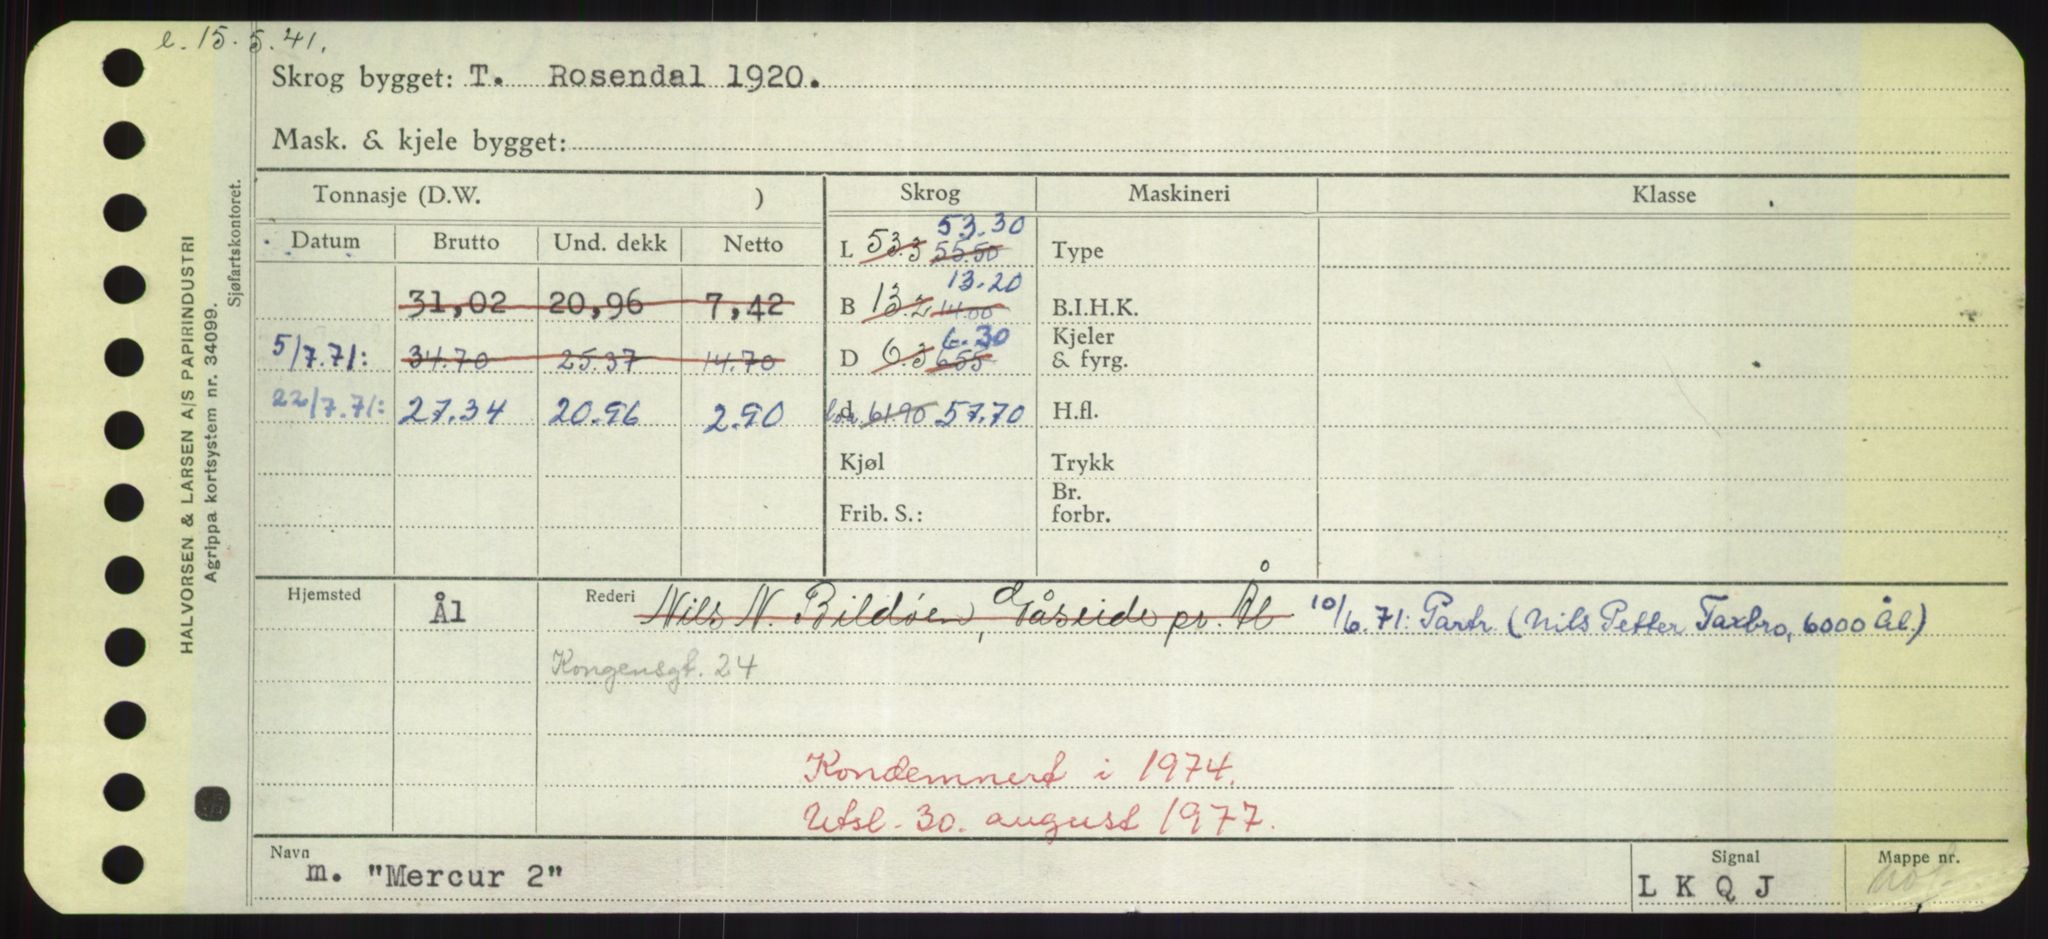 e. 15.5.41.
Skrog bygget: T. Rosendal 1920.
Mask. & kjele bygget:
HALVORSEN & LARSEN A/S PAPIRINDUSTRI
Agrippa kortsystem nr. 34099.
Sjøfartskontoret.
Tonnasje (D.W. ) Skrog Maskineri Klasse
Datum Brutto Und. dekk Netto
53.30
L 53.3 55.50 Type
13.20
31,02 20,96 7,42 B 13.2 14.00 B.I.H.K.
6.30 Kjeler
5/7.71: 34.70 25.37 14.70 D 6.3 6.55 & fyrg.
22/7.71: 27.34 20.96 2.90 d 61.90 57.70 H.fl.
Kjøl Trykk
Br.
Frib. S.: forbr.
Hjemsted Ål Rederi Nils N. Bildøen, Gåseide pr. Ål 10/6.71: Partr (Nils Petter Taxbro, 6000 Ål.)
Kongensgt. 24
Kondemnert i 1974.
Utsl. 30. august 1977.
Navn m. "Mercur 2" Signal L K Q J Mappe nr.